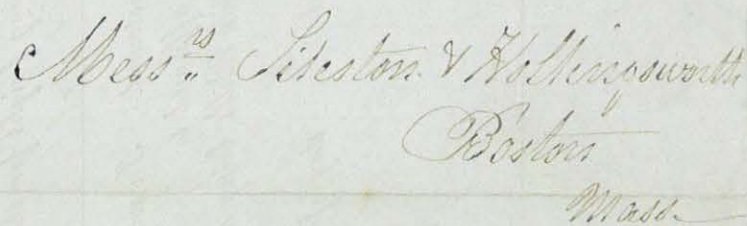 Messrs Tileston & Hollingsworth
Boston
Mass.